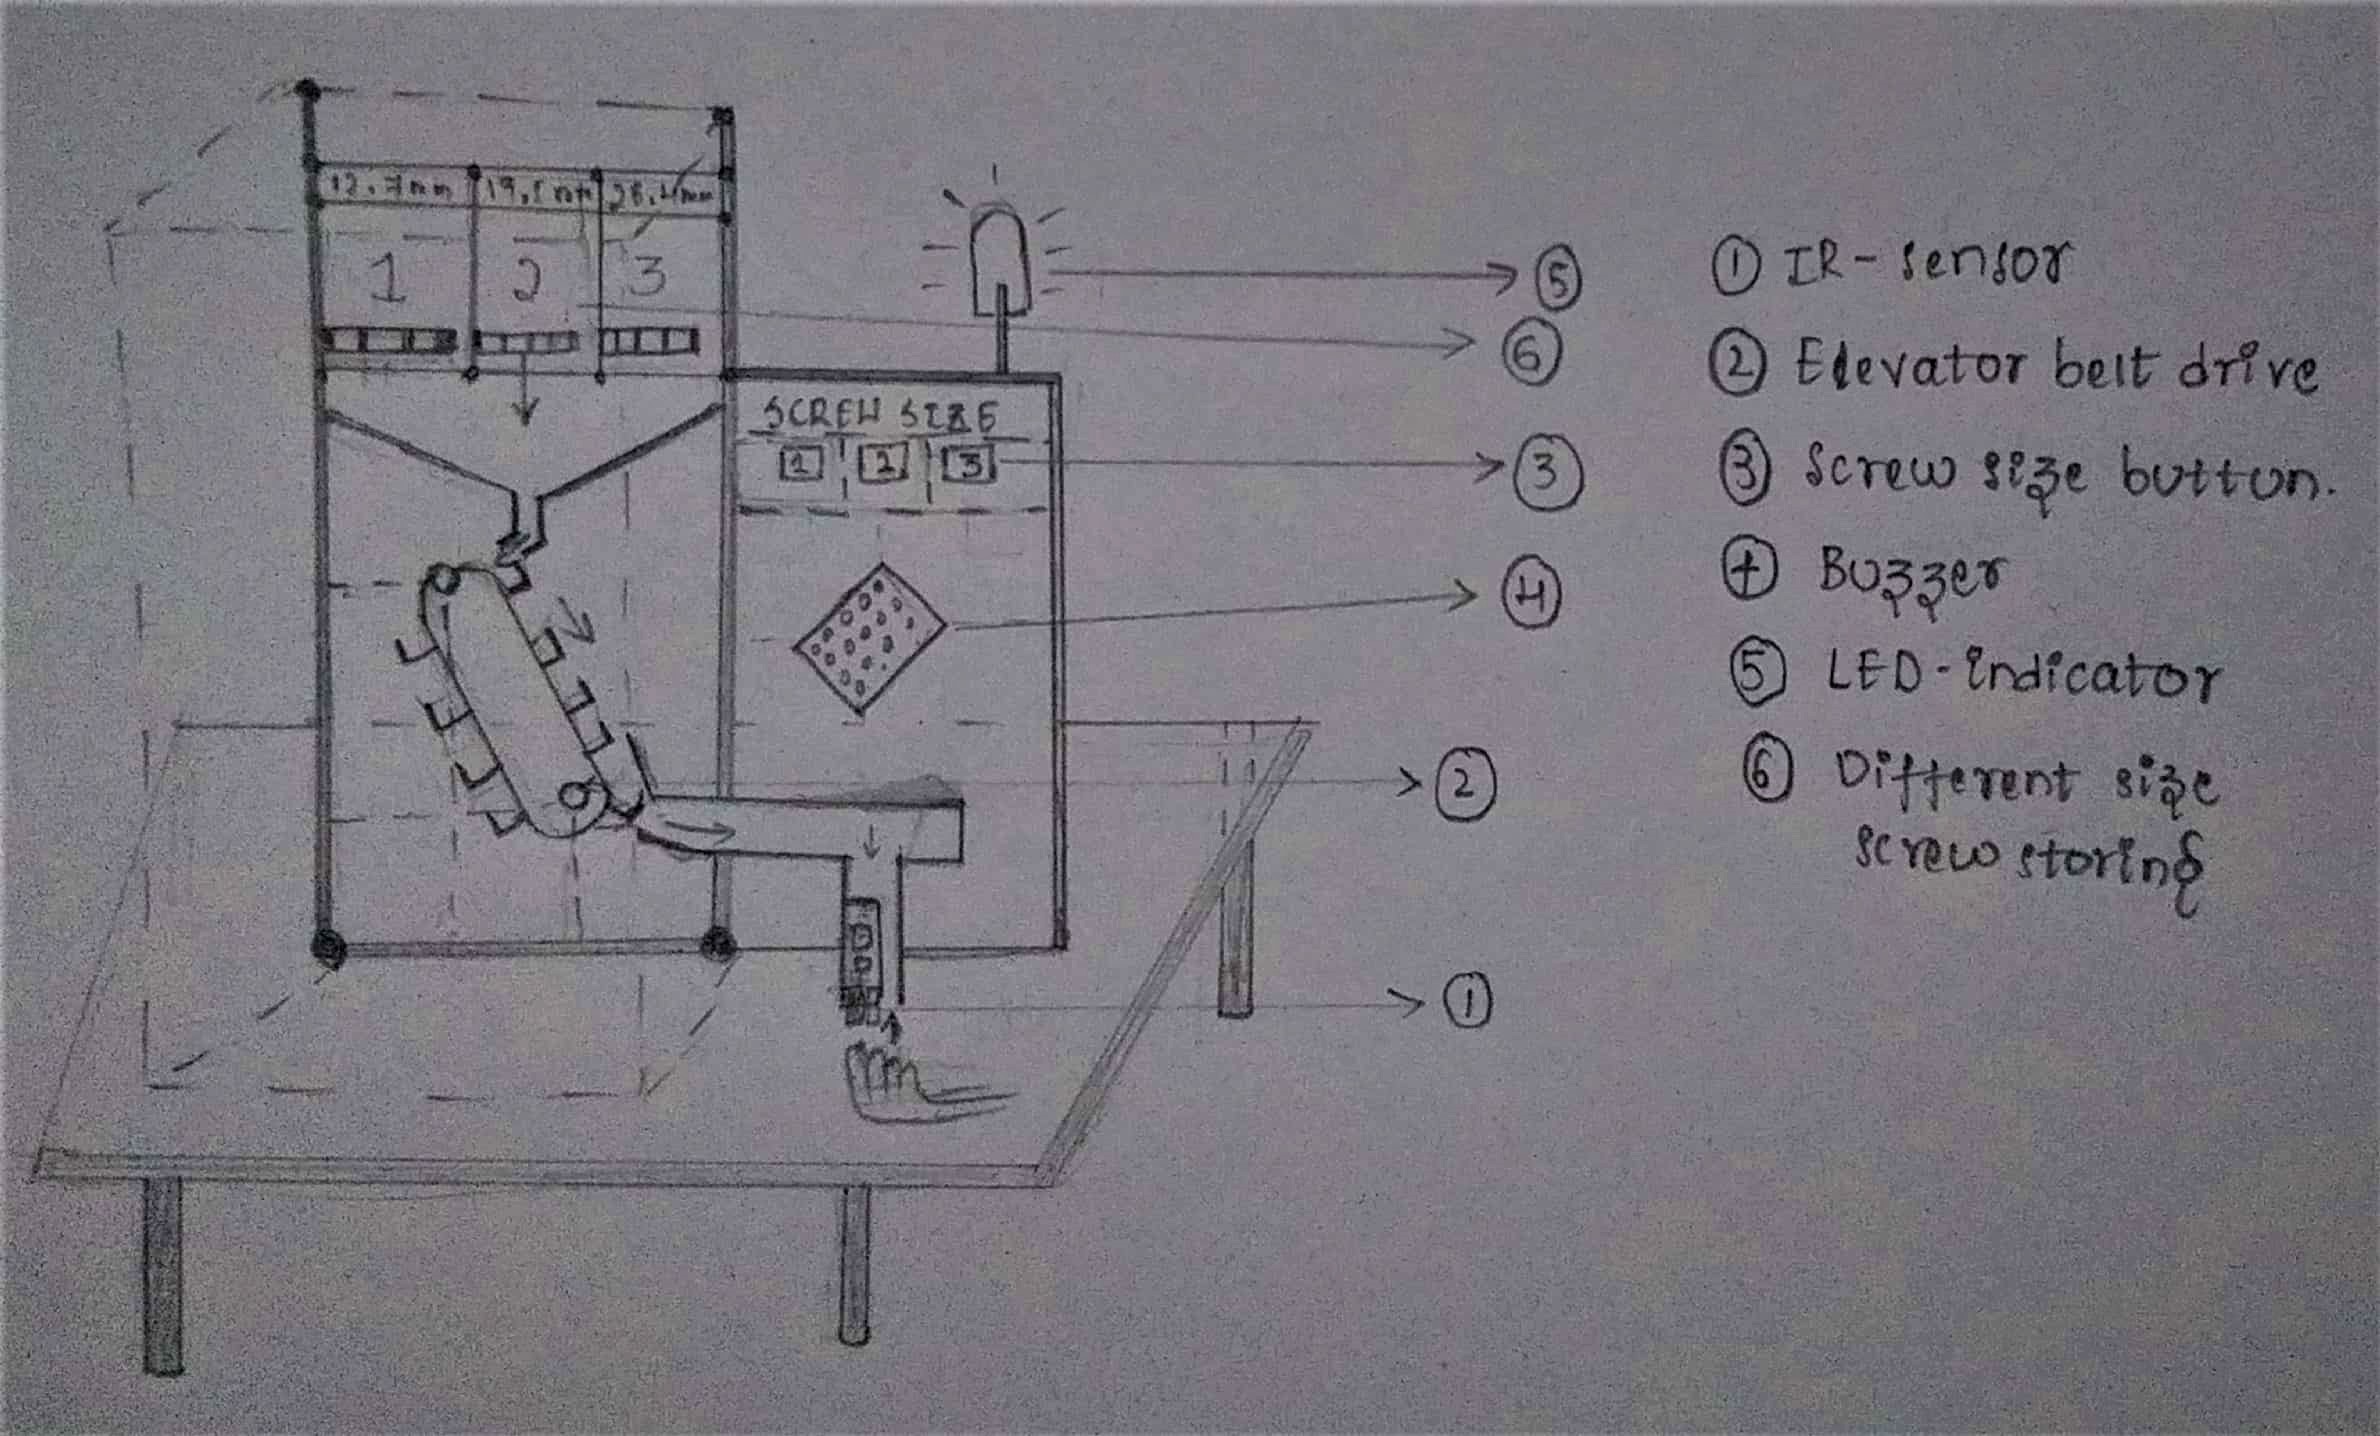 12.7mm 19.5mm 25.4mm
1 2 3
SCREW SIZE
1 2 3
5
6
3
4
2
1
① IR-sensor
② Elevator belt drive
③ Screw size button.
④ Buzzer
⑤ LED-indicator
⑥ Different size
screw storing